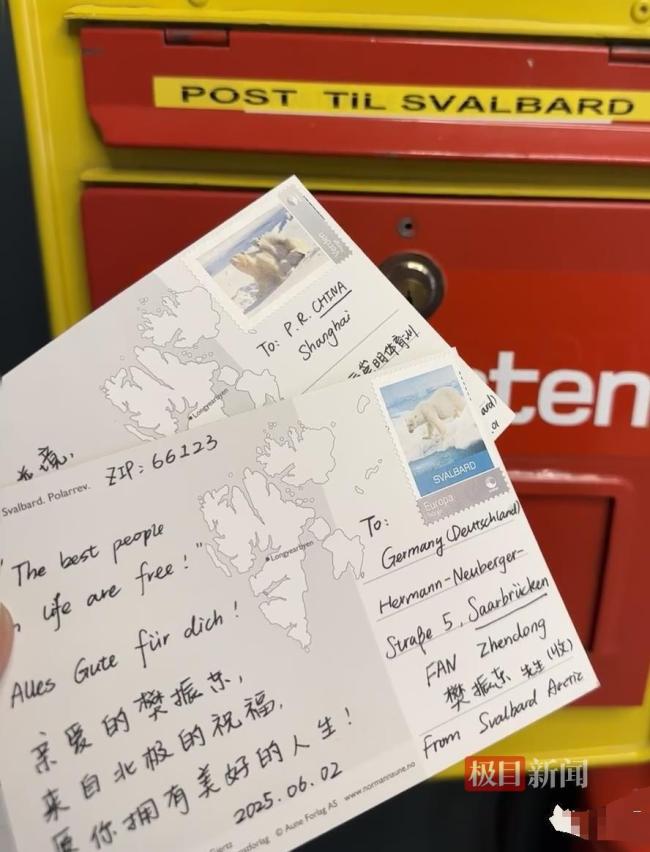 POST TIL SVALBARD
ten
Norden
To: P.R. CHINA
Shanghai
Longyearbyen
Svalbard. Polarrev.
ZIP: 66123
"The best people
life are free!"
Alles Gute für dich!
亲爱的樊振东,
来自北极的祝福,
愿你拥有美好的人生!
2025.06.02
© Aune Forlag AS www.normannaune.no
Longyearbyen
SVALBARD
Europa
To:
Germany (Deutschland)
Hermann-Neuberger-
Straße 5, Saarbrücken
FAN Zhendong
樊振东 先生 (收)
From Svalbard Arctic
极目新闻